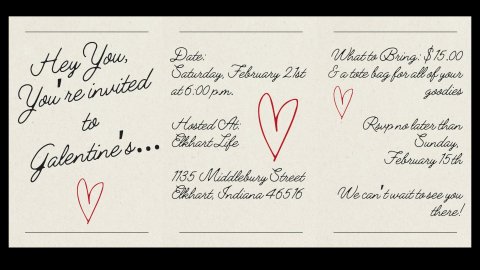 Hey You,
You're invited
to
Galentine's...
Date:
Saturday, February 21st
at 6:00 p.m.
Hosted At:
Elkhart Life
1135 Middlebury Street
Elkhart, Indiana 46516
What to Bring: $15.00
& a tote bag for all of your
goodies
Rsvp no later than
Sunday,
February 15th
We can't wait to see you
there!